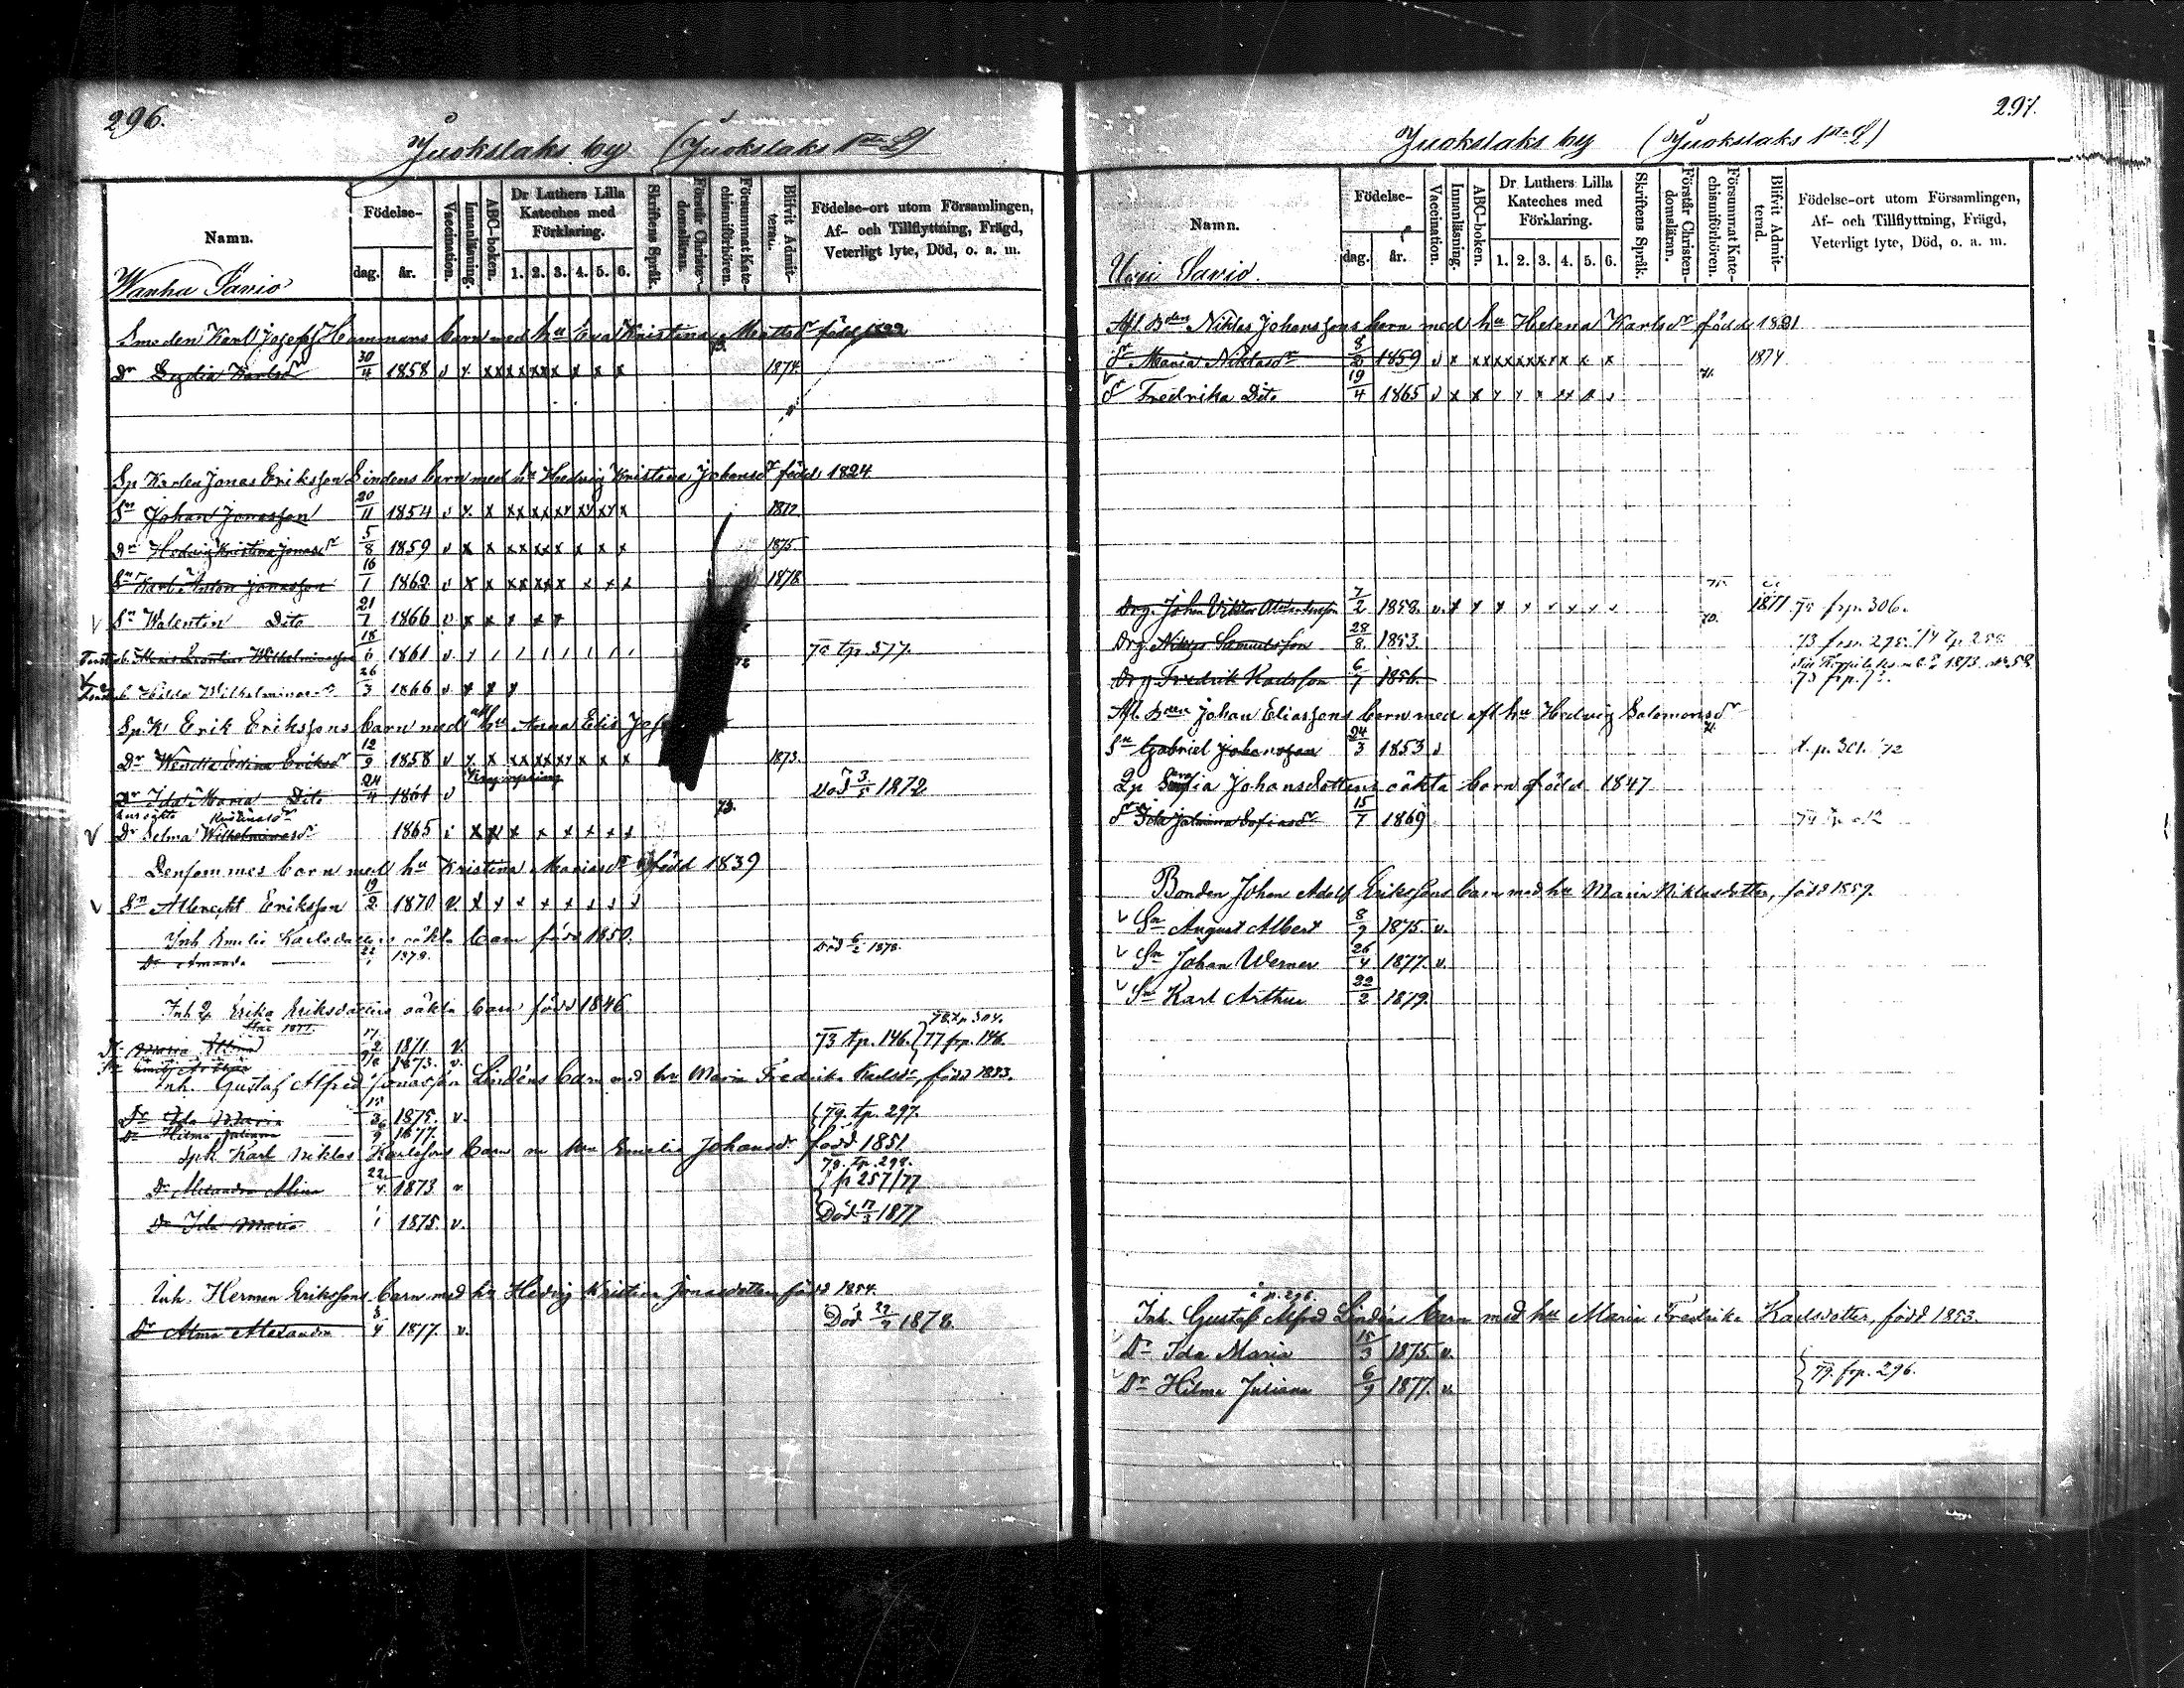 296.
Juokslaks by (Juokslaks 1sta L)
Namn.
Födelse-
dag.
år.
Vaccination.
Innanläsning.
ABC-boken.
Dr Luthers Lilla Kateches med Förklaring.
1. 2. 3. 4. 5. 6.
Skriftens Språk.
Förstår Christendomsläran.
Försummat Katechismiförhören.
Blifvit Admitterad.
Födelse-ort utom Församlingen,
Af- och Tillflyttning, Frägd,
Veterligt lyte, Död, o. a. m.
Wanha Savio
Smeden Karl Josefss Hammars barn med hu Eva Kristina Mattsdr född 1822
Dr Lydia Karlsdr 30/4 1858 v x x xx xx xx x x x 1874
Sp. Karlen Jonas Eriksson Lindens barn med hu Hedvig Kristina Johansdr född 1824.
Sn Johan Jonasson 20/11 1854 v x x xx xx xx xx xx x 1872
Dr Hedvig Kristina Jonasdr 5/8 1859 v x x xx xx x x x x 1875
Sn Karl Anton Jonasson 16/1 1862 v x x xx xx x x x x 1878
v Sn Walentin Dito 21/7 1866 v x x x x x
18/6 1861 v 72 tp 377.
Hilda Wilhelminasdr 26/3 1866 v x x x
Sp. K. Erik Erikssons barn med afl hu Anna Elis Josefs
Dr Wendla Edina Eriksdr 12/9 1858 v x x xx xx xx x x x 1873.
Dr Ida Maria Dito 24/4 1861 v Död 3/5 1872
v Dr Selma Wilhelminasdr Kristinasdr 1865
73.
Densammes barn med hu Kristina Mariasdr född 1839
v Sn Albrecht Eriksson 19/2 1870 v. x x x x x x x x
Inh Emelie Karlsdotters oäkta barn född 1850.
Dr Amanda 22/1 1878. Död 6/2 1878.
Inh Erika Eriksdotters oäkta barn född 1846
Dr Maria Alina 17/2 1871 v. 73 tp. 146. 77 frp. 146. 78 tp 304.
Sn Emil Arthur 1873. v.
Inh. Gustaf Alfred Jonasson Lindéns barn med hu Maria Fredrika Karlsdr, född 1853.
Dr Ida Maria 15/3 1875. v. 79. tp. 297.
Dr Hilma Juliana 6/9 1877.
Sp.k. Karl Niklas Karlssons barn m hu Emelia Johansdr född 1851
78. tp. 294.
Dr Alexandra Alina 22/4 1873 v fr 257/77
Dr Ida Maria 1875. v. Död 1877
Inh. Herman Erikssons barn med hu Hedvig Kristina Jonasdotter född 1854.
Dr Alma Alexandra 1877. v. Död 1878.
297.
Juokslaks by (Juokslaks 1sta L)
Namn.
Födelse-
dag.
år.
Vaccination.
Innanläsning.
ABC-boken.
Dr Luthers Lilla Kateches med Förklaring.
1. 2. 3. 4. 5. 6.
Skriftens Språk.
Förstår Christendomsläran.
Försummat Katechismiförhören.
Blifvit Admitterad.
Födelse-ort utom Församlingen,
Af- och Tillflyttning, Frägd,
Veterligt lyte, Död, o. a. m.
Uusi Savio.
Afl. Bden Niklas Johanssons barn med hu Helena Karlsdr född 1821
Dr Maria Niklasdr 8/2 1859 v x x x x x x x x x x x 1874
v Dr Fredrika Dito 19/4 1865 v x x x x x xx x
Drg. Johan Viktor Alexandersson 7/2 1858. v. x x x x x x x x 1877 75 frp. 306.
Drg Niklas Samuelsson 28/8. 1853. 73 frp. 298.
Drg Fredrik Karlsson 6/7 1856. 73 frp. 75.
Afl. Bden Johan Eliassons barn med afl hu Hedvig Salomonsdr
Sn Gabriel Johansson 24/3 1853 v t. p. 301. 72
Lp Sofia Johansdotters oäkta barn född 1847
Dr Ida Johanna Sofiasdr 15/7 1869
Bonden Johan Adolf Erikssons barn med hu Maria Niklasdotter, född 1859.
v Sn August Albert 8/9 1875. v.
v Sn Johan Werner 26/4 1877. v.
v Sn Karl Arthur 22/2 1879.
i p. 296.
Inh. Gustaf Alfred Lindén barn med hu Maria Fredrika Karlsdotter, född 1853.
v Dr Ida Maria 15/3 1875. v.
v Dr Hilma Juliana 6/9 1877. v. 79. frp. 296.